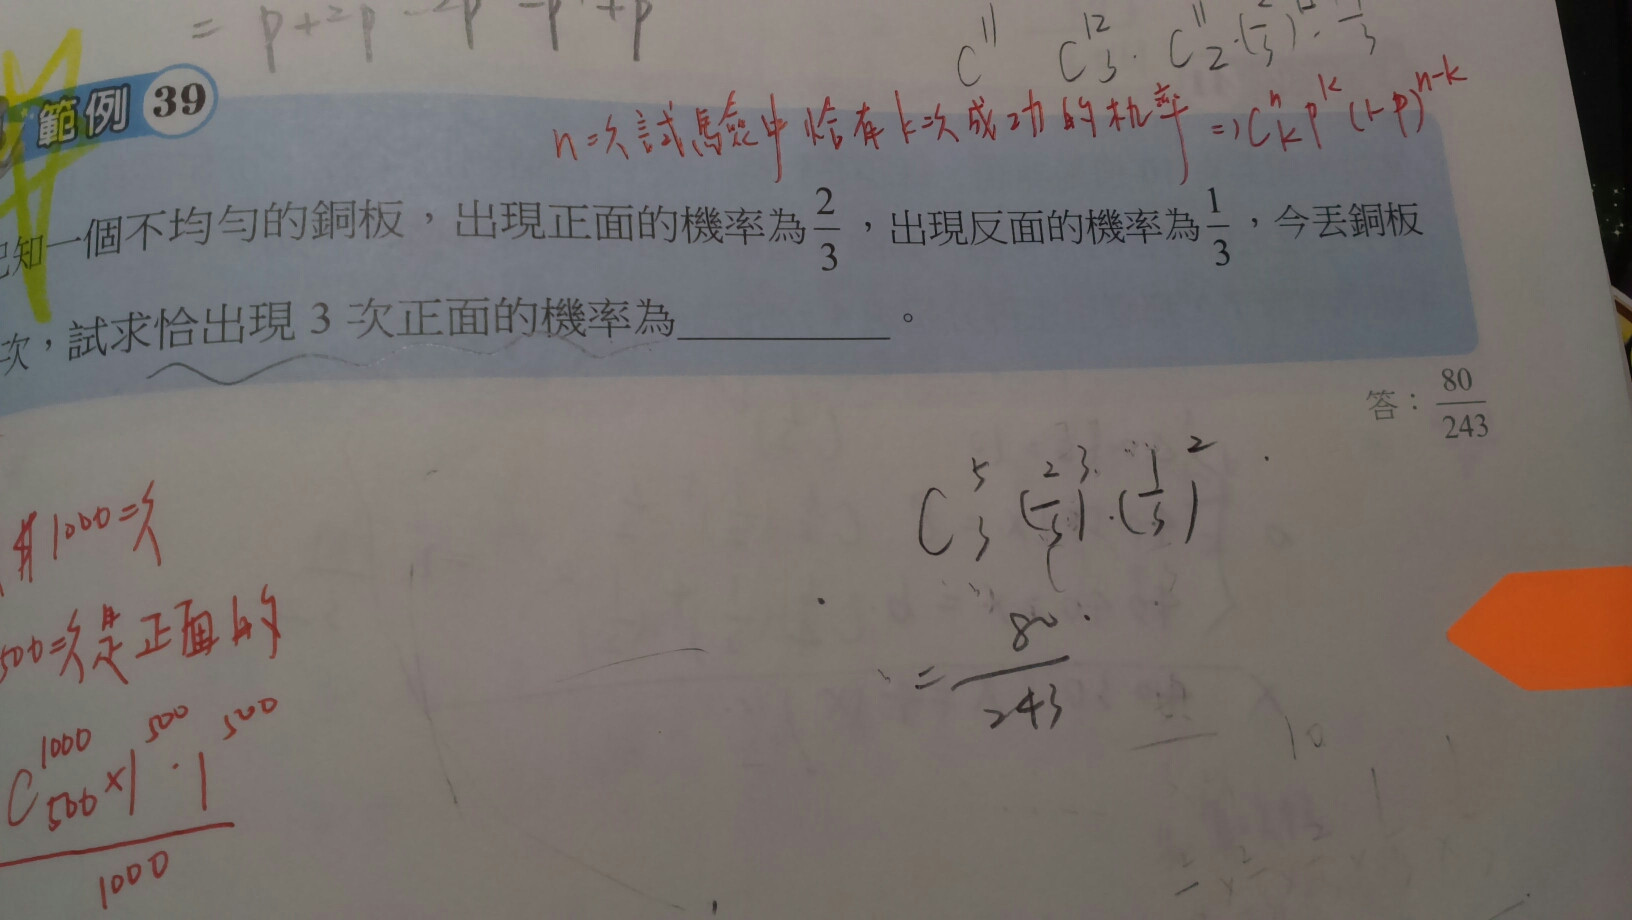 = p+2p
C¹¹ C₃¹² · C₂¹¹ ·
範例 39
n=次試驗中恰有k次成功的机率 ⇒ Cₖⁿ pᵏ (1-p)ⁿ⁻ᵏ
知一個不均勻的銅板，出現正面的機率為 2/3 ，出現反面的機率為 1/3 ，今丟銅板
次，試求恰出現 3 次正面的機率為________。
答： 80/243
C₃⁵ (2/3)³ · (1/3)²
= 80/243
1000次
500次是正面的
C₅₀₀¹⁰⁰⁰ × 1⁵⁰⁰ · 1⁵⁰⁰
1000